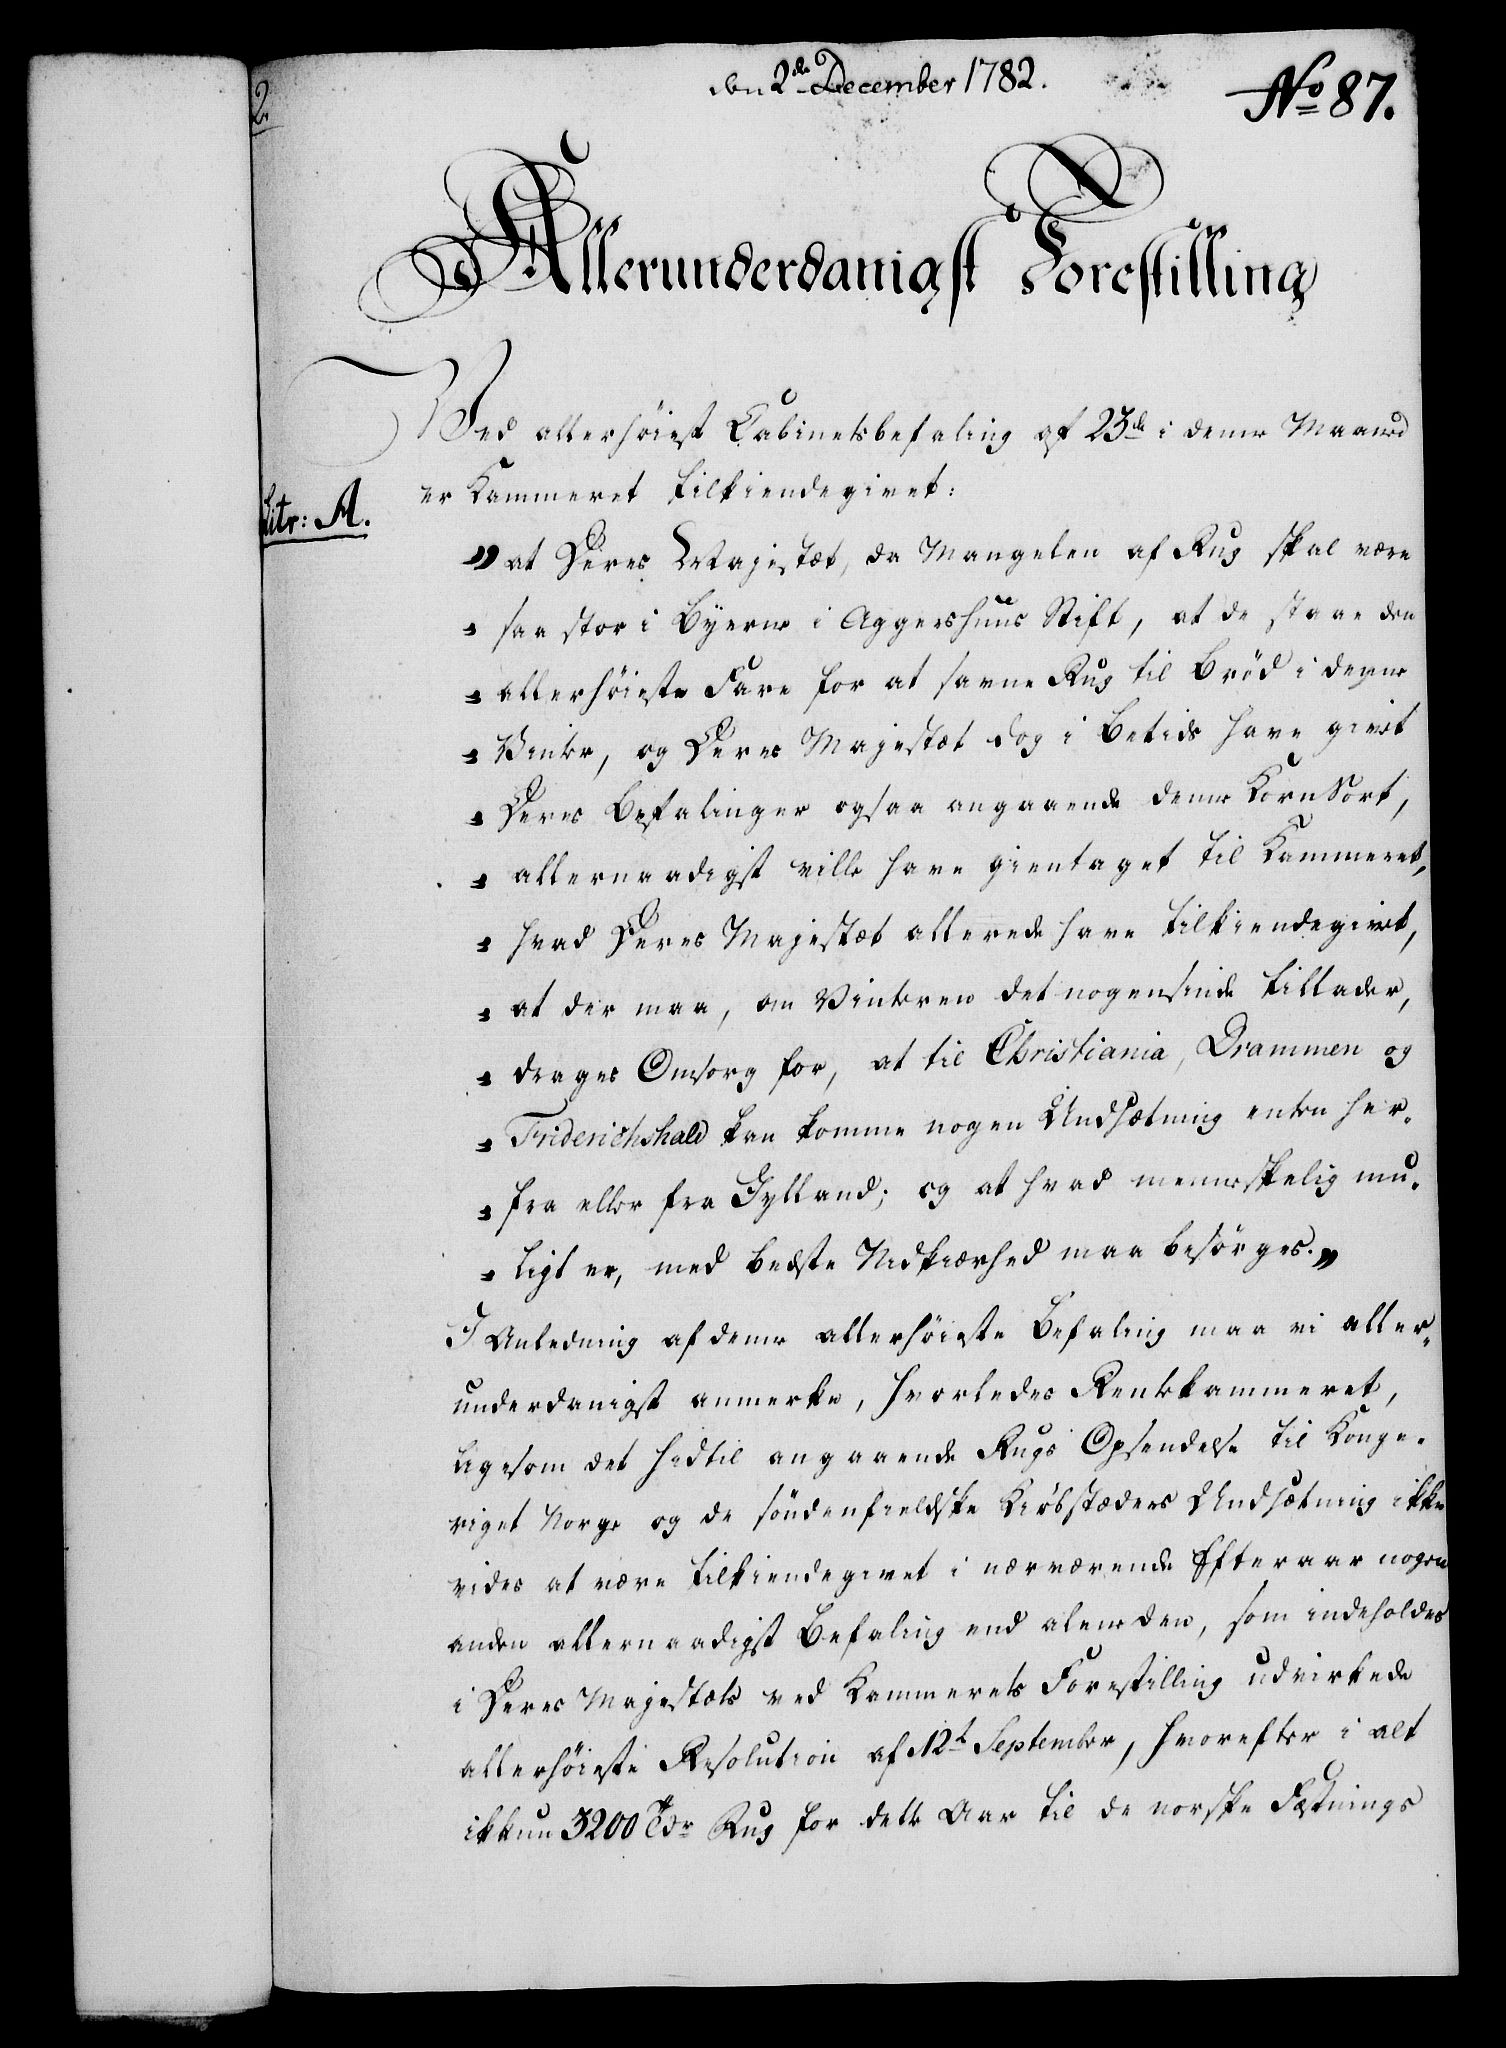 den 2de December 1782.
No 87.
2.
Allerunderdanigst Forestilling
Ved allerhöiest Cabinetsbefaling af 23de i denne Maaned
er Kammeret tilkiendegivet:
Litr: A.
„at Deres Majestæt, da Mangelen af Rug skal være
„ saa stor i Byerne i Aggershuus Stift, at de staae den
„ allerhöieste Fare for at savne Rug til Bröd i denne
„ Vinter, og Deres Majestæt dog i Betids have givet
„ Deres Befalinger ogsaa angaaende denne KornSort,
„ allernaadigst ville have gientaget til Kammeret,
„ hvad Deres Majestæt allerede have tilkiendegivet,
„ at der maa, om Vinteren det nogensinde tillader,
„ drages Omsorg for, at til Christiania, Drammen og
„ Friderichshald kan komme nogen Undsætning enten her-
„ fra eller fra Jylland; og at hvad menneskelig mu-
„ ligt er, med bedste Nidkiærhed maa besörges.„
I Anledning af denne allerhöieste Befaling maa vi aller-
underdanigst anmerke, hvorledes Rentekammeret,
ligesom det hidtil angaaende Rugs Opsendelse til Konge-
riget Norge og de söndenfieldske Kiöbstæders Undsætning ikke
vides at være tilkiendegivet i nærværende Efteraar nogen
anden allernaadigst Befaling end alene den, som indeholdes
i Deres Majestæts ved Kammerets Forestilling udvirkede
allerhöieste Resolution af 12t September, hvorefter i alt
ikkun 3200 Tdr Rug for dette Aar til de norske Fæstnings